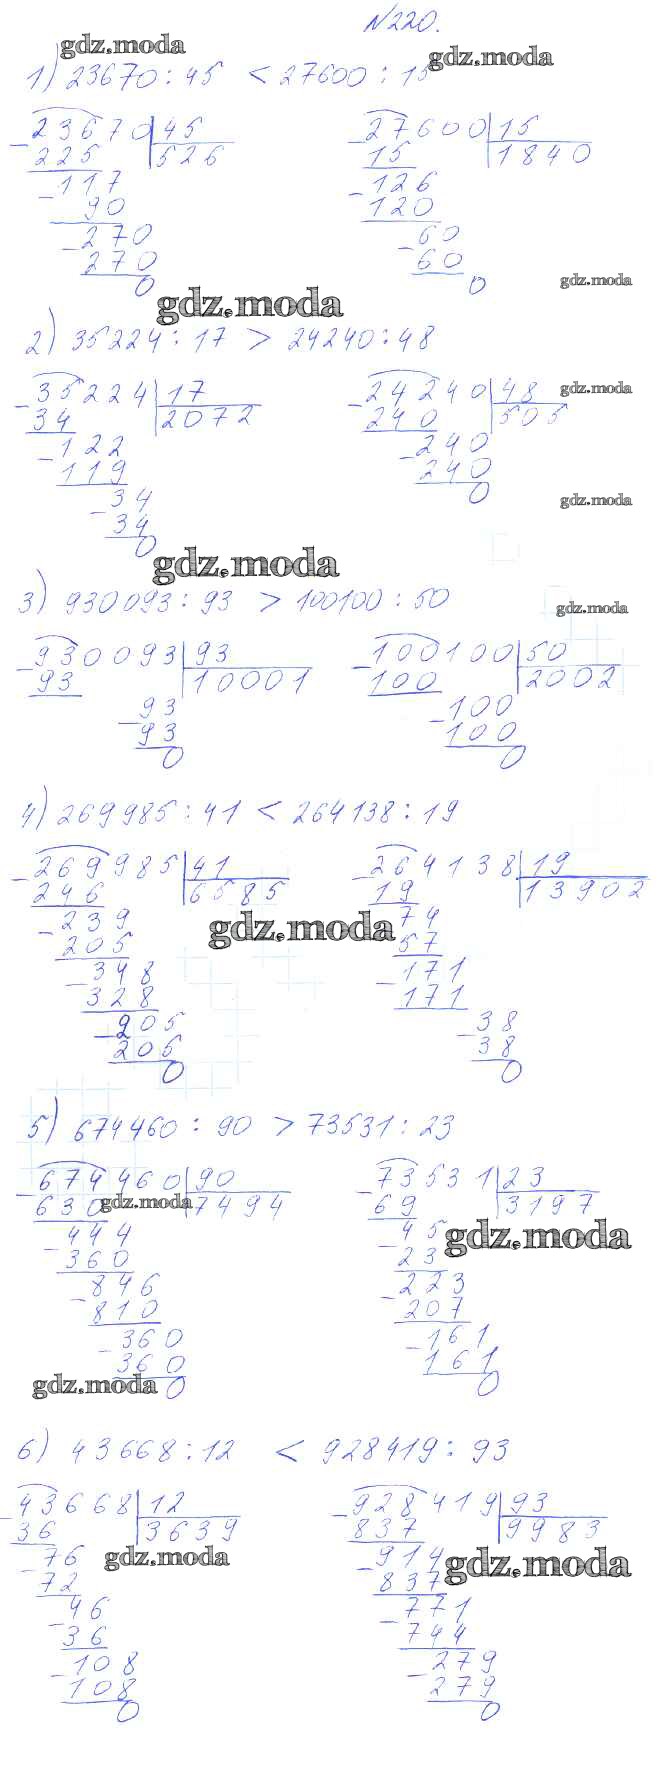 №220.
gdz.moda
gdz.moda
1) 23670 : 45 < 27600 : 15
23670 | 45
225 | 526
117
90
270
270
0
27600 | 15
15 | 1840
126
120
60
60
0
gdz.moda
gdz.moda
2) 35224 : 17 > 24240 : 48
35224 | 17
34 | 2072
122
119
34
34
0
24240 | 48
240 | 505
240
240
0
gdz.moda
gdz.moda
gdz.moda
3) 930093 : 93 > 100100 : 50
gdz.moda
930093 | 93
93 | 10001
93
93
0
100100 | 50
100 | 2002
100
100
0
4) 269985 : 41 < 264138 : 19
269985 | 41
246 | 6585
239
205
348
328
205
205
0
264138 | 19
19 | 13902
74
57
171
171
38
38
0
gdz.moda
5) 674460 : 90 > 73531 : 23
674460 | 90
630 | 7494
444
360
846
810
360
360
0
gdz.moda
73531 | 23
69 | 3197
45
23
223
207
161
161
0
gdz.moda
gdz.moda
6) 43668 : 12 < 928419 : 93
43668 | 12
36 | 3639
76
72
46
36
108
108
0
gdz.moda
928419 | 93
837 | 9983
914
837
771
744
279
279
0
gdz.moda